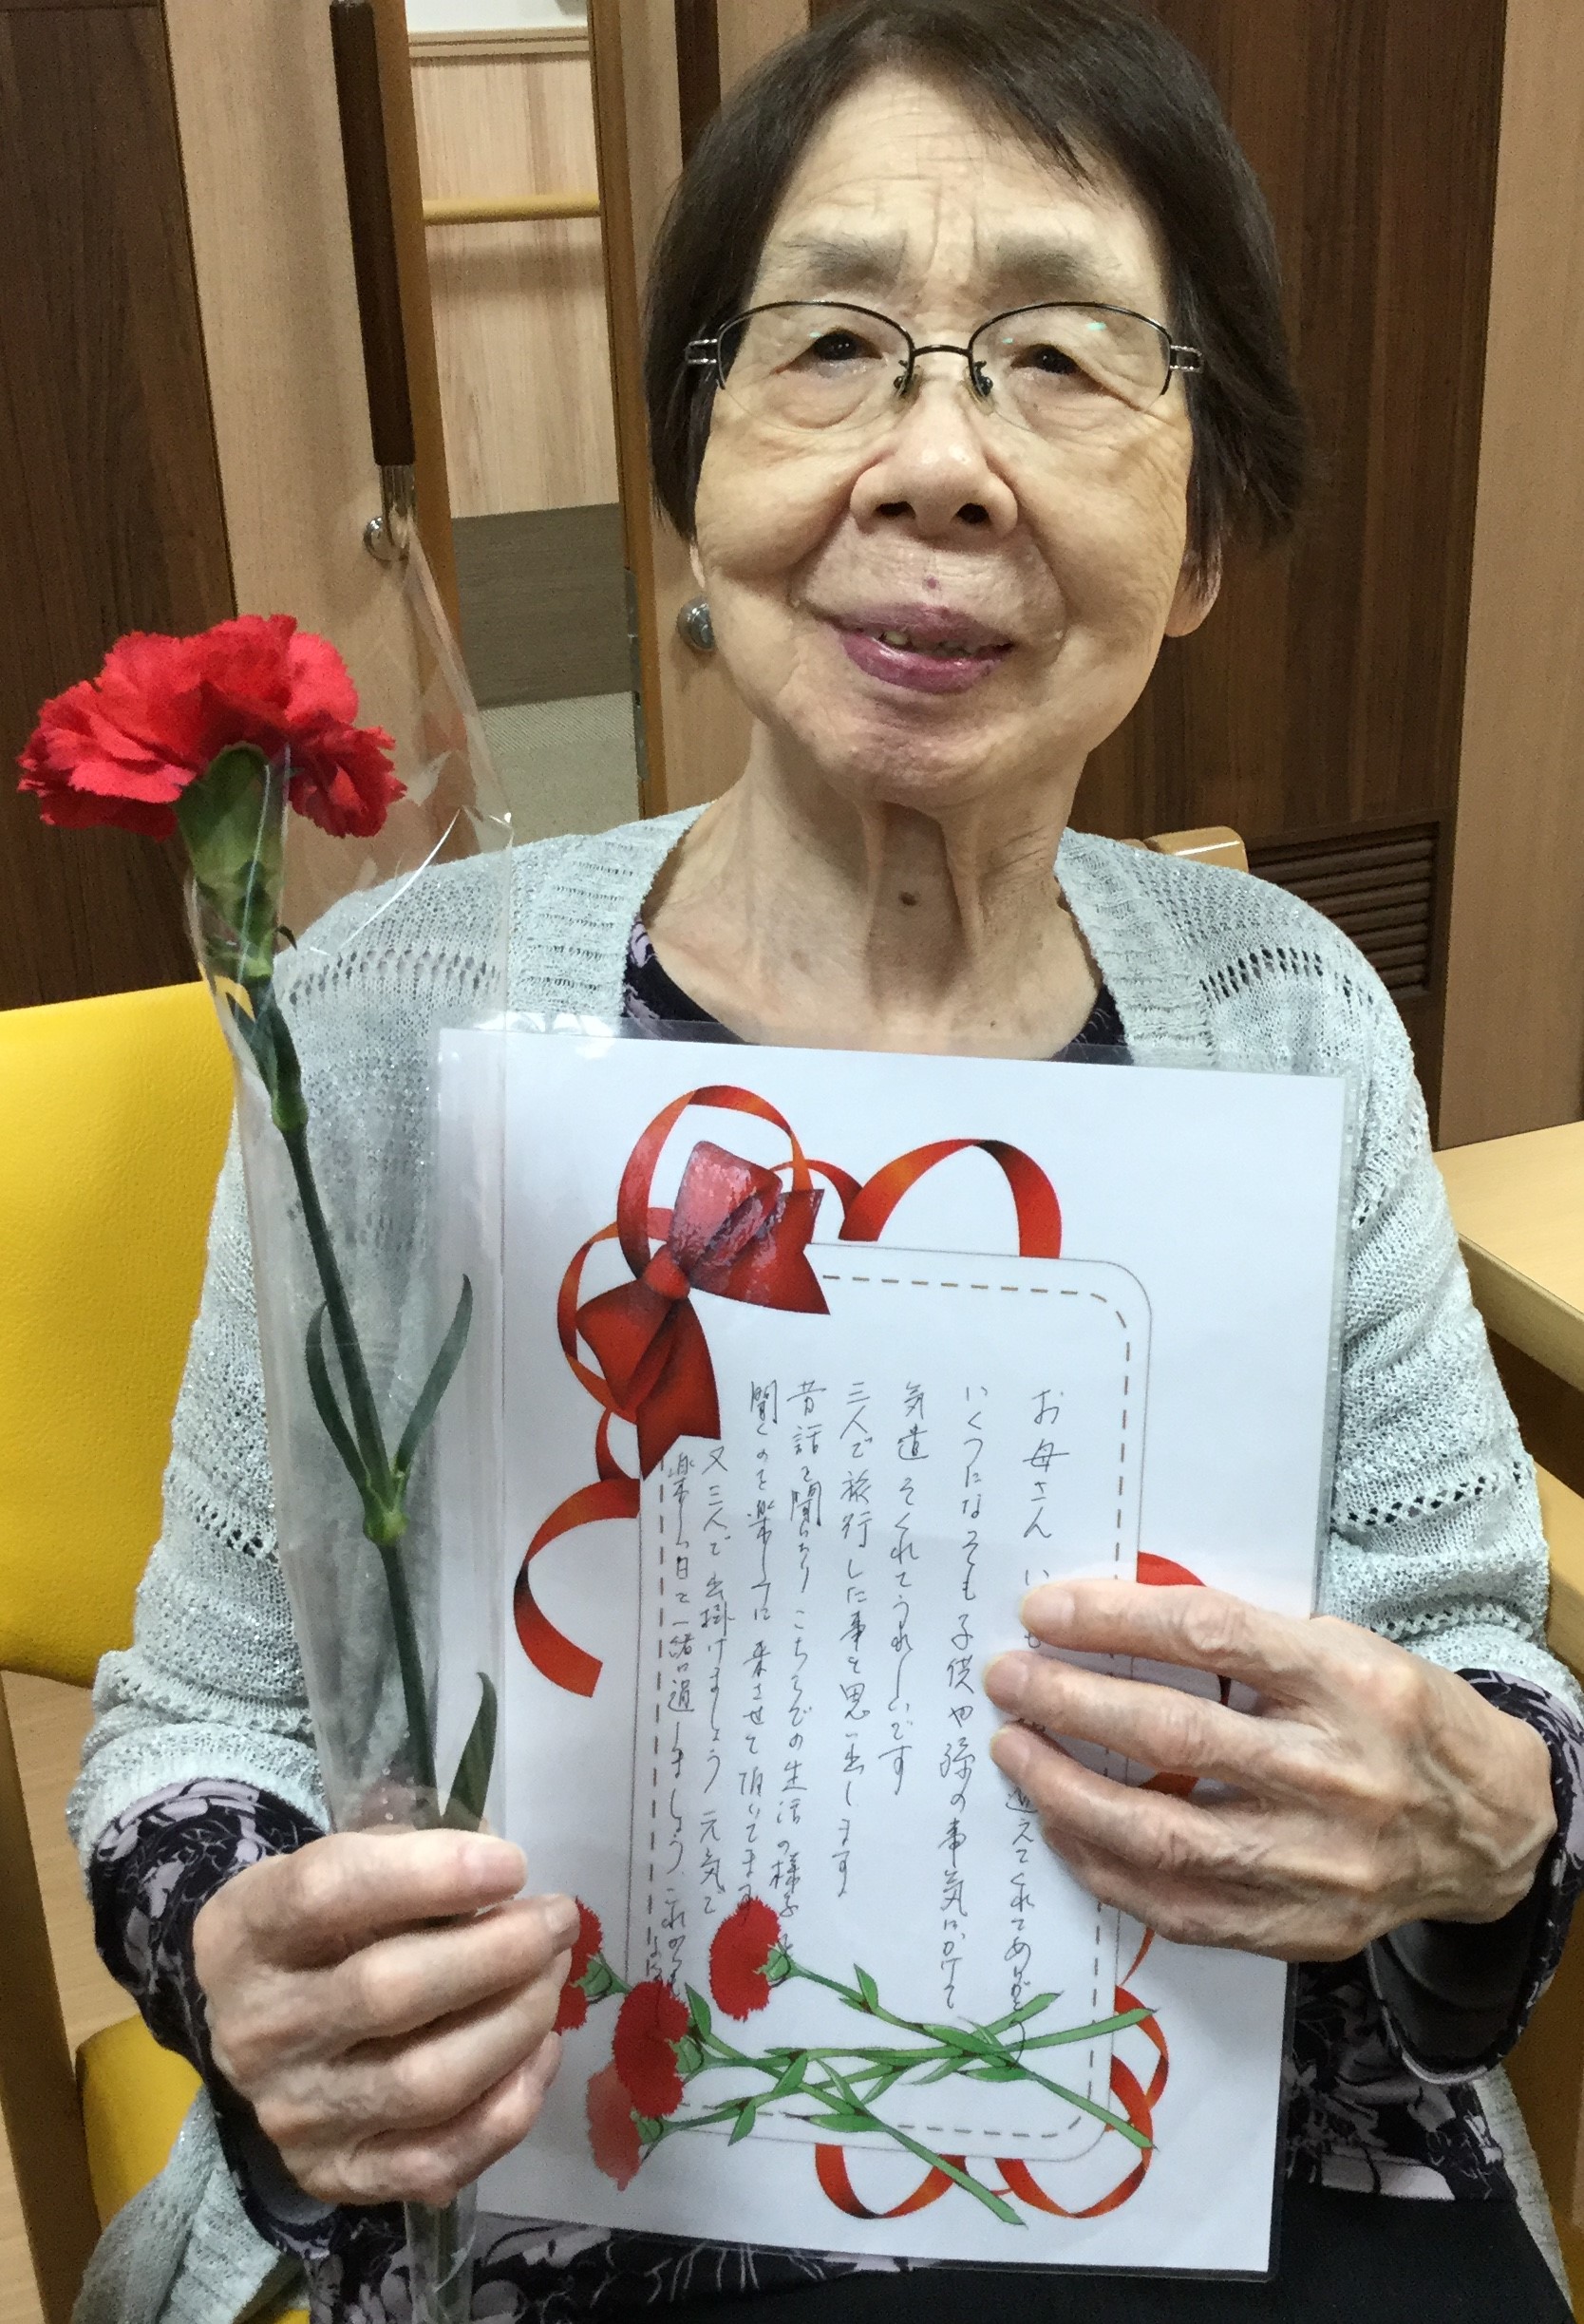 お母さん い
迎えてくれてありがとう
いくつになっても子供や孫の事気にかけて
気遣ってくれてうれしいです
三人で旅行した事を思い出します
昔話を聞いたり こちらでの生活の様子を
聞くのを楽しみに 来させて頂いてます
又三人で出掛けましょう 元気で
楽しい日を一緒に過しましょう、これからも